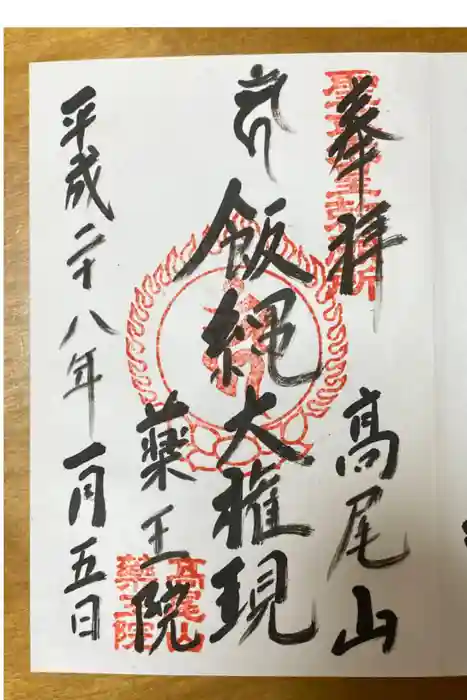 奉拝
高尾山
飯縄大権現
薬王院
平成二十八年一月五日
高尾山
薬王院